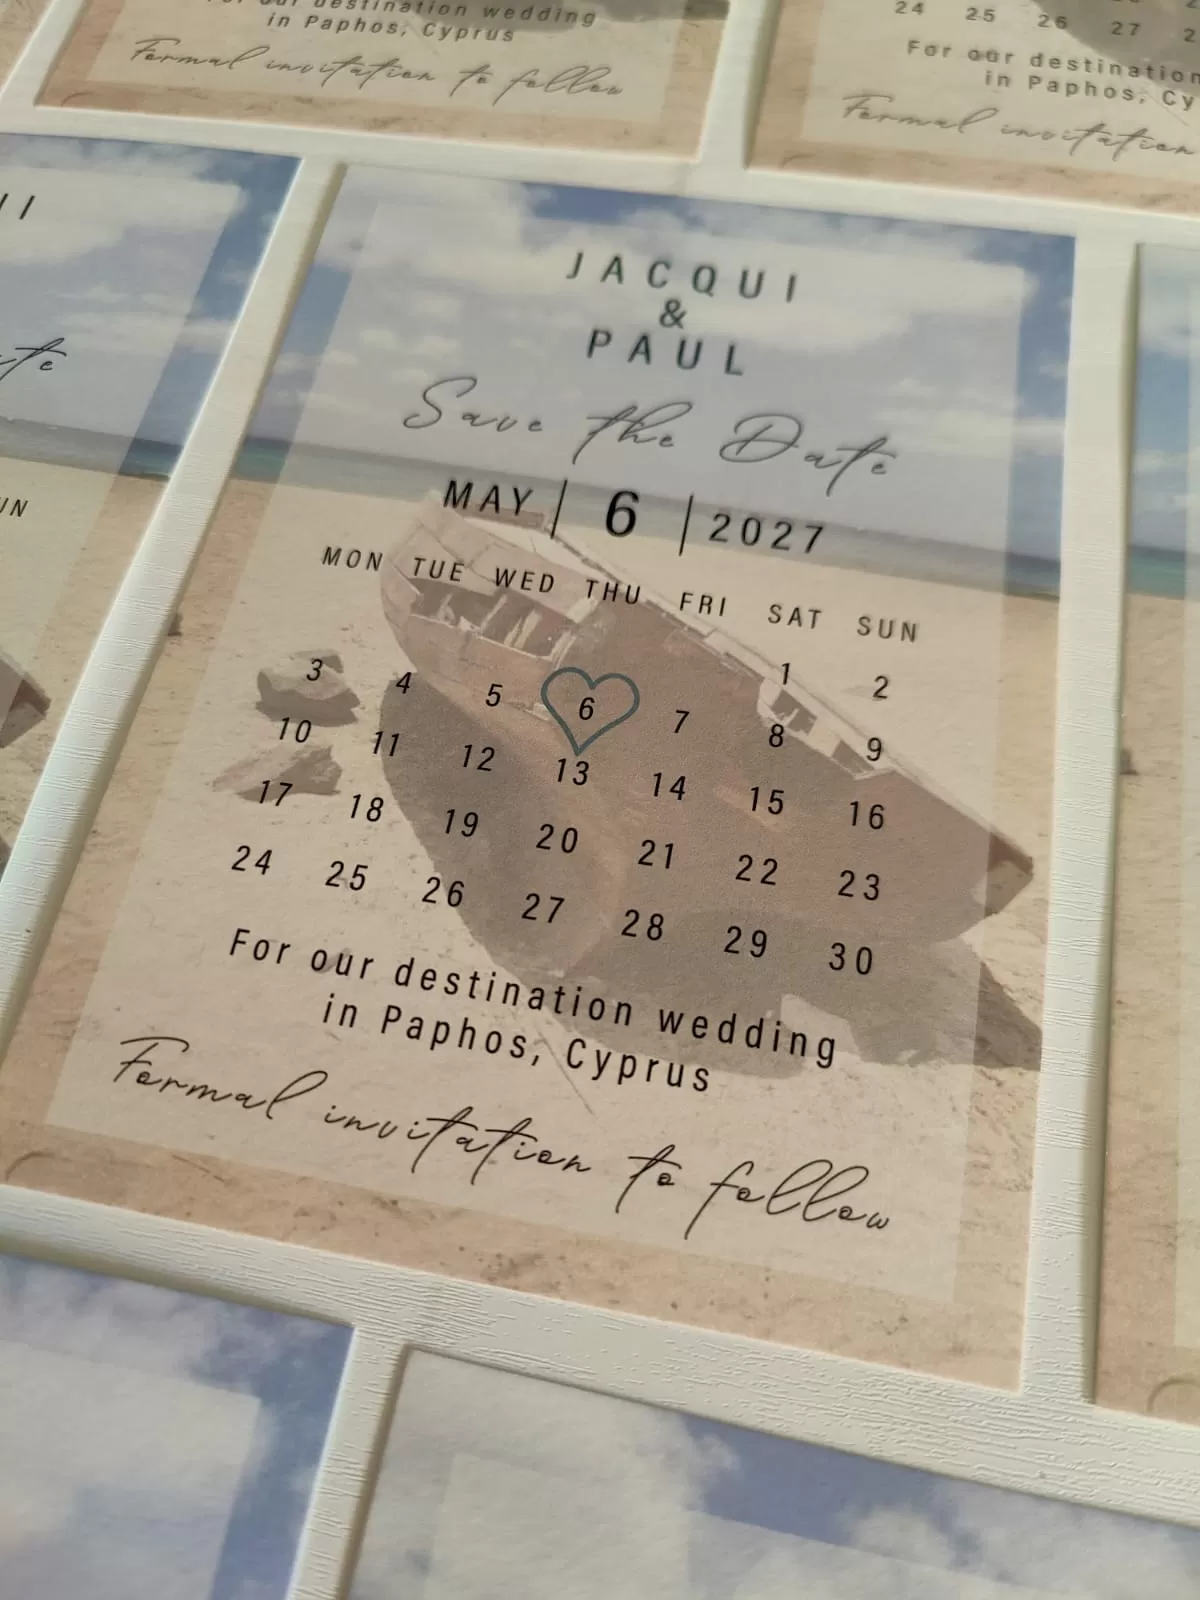 For our destination wedding
in Paphos, Cyprus
Formal invitation to follow
24 25 26 27
For our destination
in Paphos, Cy
Formal invitation
JACQUI
&
PAUL
Save the Date
MAY | 6 | 2027
MON TUE WED THU FRI SAT SUN
1 2
3 4 5 6 7 8 9
10 11 12 13 14 15 16
17 18 19 20 21 22 23
24 25 26 27 28 29 30
For our destination wedding
in Paphos, Cyprus
Formal invitation to follow